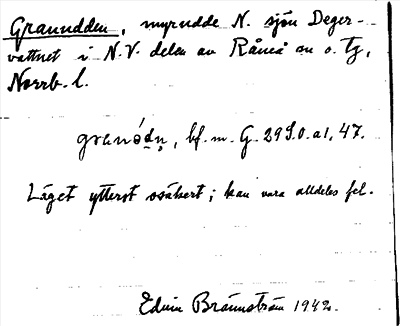 Granudden, myrudde N. sjön Deger-
vattnet i N.V. delen av Råneå sn o. tg,
Norrb. l.
granúdn̥, bf. m. G. 29 S.O. a 1, 47.
Läget ytterst osäkert; kan vara alldeles fel.
Edvin Brännström 1942.